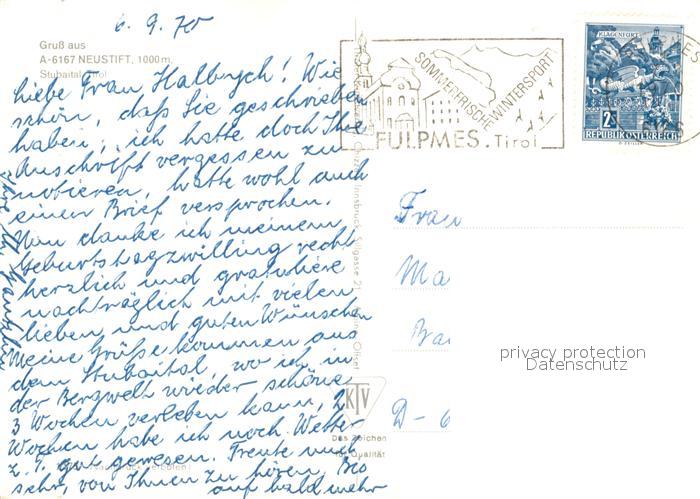 6.9.70
Gruß aus
A-6167 NEUSTIFT, 1000 m,
Stubaital, Tirol
Liebe Frau Halbrych! Wie
schön, daß Sie geschrieben
haben, ich hatte doch Ihre
Anschrift vergessen zu
notieren, hatte wohl auch
einen Brief versprochen.
Nun danke ich meinem
Geburtstagzwilling recht
herzlich und gratuliere
nachträglich mit vielen
lieben und guten Wünschen
Meine Grüße kommen aus
dem Stubaital, wo ich in
der Bergwelt wieder schöne
3 Wochen verleben kann, 2
Wochen habe ich noch. Wetter
z. T. gut gewesen. Freute mich
sehr, von Ihnen zu hören. Bis
auf bald mehr
Ihre
Innsbruck, Sillgasse 21
Offset
KTV
Das Zeichen
für Qualität
SOMMERFRISCHE WINTERSPORT
FULPMES . Tirol
KLAGENFURT
2 S
REPUBLIK ÖSTERREICH
Frau
Ma
Ba
D - 6
privacy protection
Datenschutz